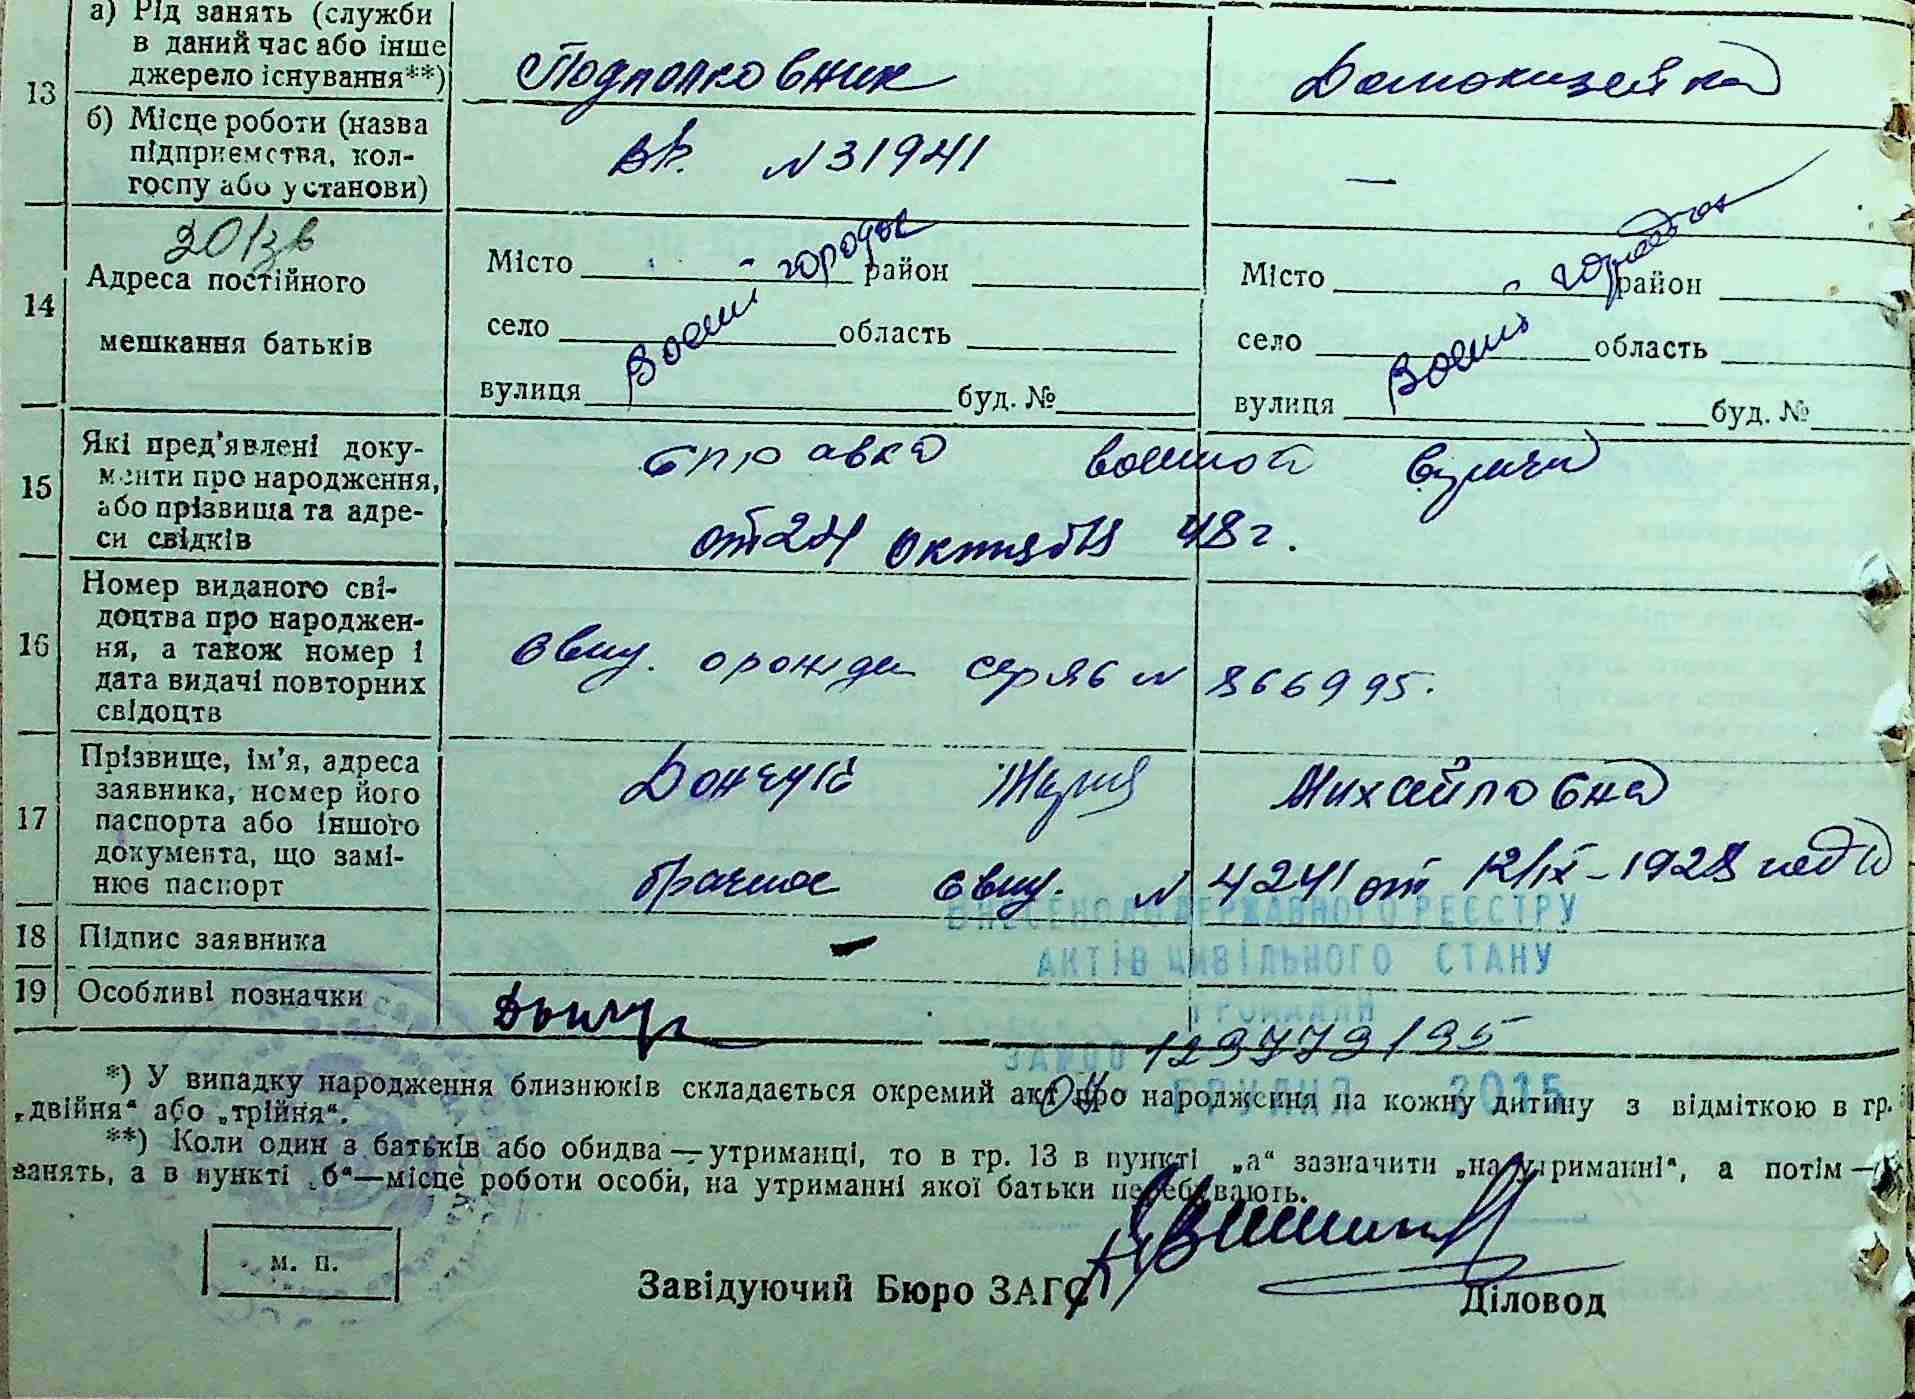 13
а) Рід занять (служби
в даний час або інше
джерело існування**)
Подполковник
Домохозяйка
б) Місце роботи (назва
підприємства, кол-
госпу або установи)
в/ч. N 31941
—
14
Адреса постійного
мешкання батьків
Місто район
село область
вулиця буд. №
Воен. городок
Місто район
село область
вулиця буд. №
Воен. городок
15
Які пред'явлені доку-
менти про народження,
або прізвища та адре-
си свідків
Справка военной
от 24 октября 48 г.
16
Номер виданого сві-
доцтва про народжен-
ня, а також номер і
дата видачі повторних
свідоцтв
свид. о рожден N 866995.
17
Прізвище, ім'я, адреса
заявника, номер його
паспорта або іншого
документа, що замі-
нює паспорт
Мария Михайловна
брачное свид. N 4241 от 12/IX-1928
18
Підпис заявника
19
Особливі позначки
ВНЕСЕНО ДО ДЕРЖАВНОГО РЕЄСТРУ
АКТІВ ЦИВІЛЬНОГО СТАНУ
ГРОМАДЯН
ЗА №00 123779195
ГРУДНЯ 2015
*) У випадку народження близнюків складається окремий акт про народження на кожну дитину з відміткою в гр.
„двійня“ або „трійня“.
**) Коли один з батьків або обидва — утриманці, то в гр. 13 в пункті „а“ зазначити „на утриманні“, а потім —
занять, а в пункті „б“ — місце роботи особи, на утриманні якої батьки перебувають.
м. п.
Завідуючий Бюро ЗАГС
Діловод